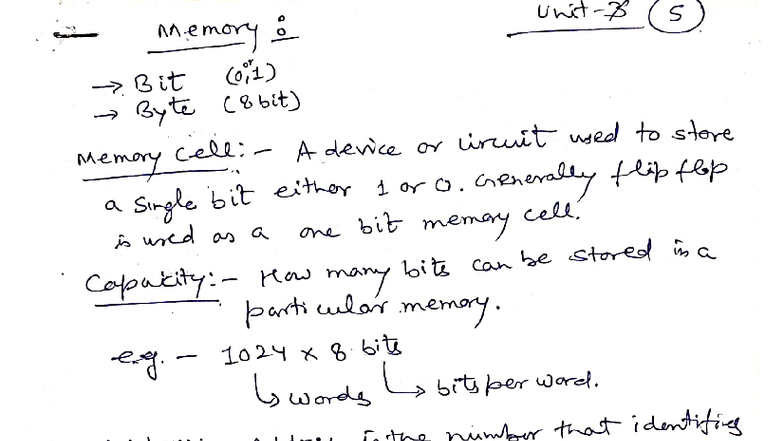 Unit-
5
Memory :
→ Bit (0 or 1)
→ Byte (8 bit)
Memory Cell:- A device or circuit used to store
a single bit either 1 or 0. Generally flip flop
is used as a one bit memory cell.
Capacity:- How many bits can be stored in a
particular memory.
e.g. - 1024 x 8 bits
↳ words ↳ bits per word.
is the number that identifies